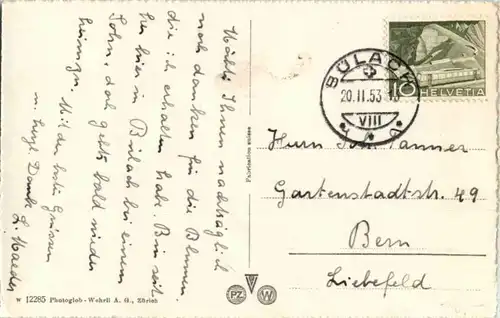 Wollte Ihnen nachträglich
noch danken für die Blumen
die ich erhalten habe. Bin seit
hier in Bülach bei einem
Sohn, doch geht's bald wieder
Mit den besten Grüssen
u. herzl. Dank L. Maeder
BÜLACH
20.II.53
VIII
10
HELVETIA
Herrn Tanner
Gartenstadtstr. 49
Bern
Liebefeld
Fabrication suisse
W 12285 Photoglob-Wehrli A. G., Zürich
PZ W